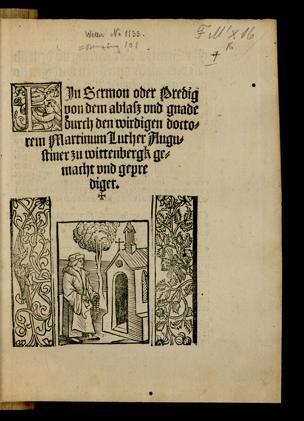 Weller No 1133.
F M' X 16
Ein Sermon oder Predig
von dem ablasz vnd gnade
durch den wirdigen docto-
rem Martinum Luther Augu-
stiner zu wittenbergk ge-
macht vnd gepre
diget.